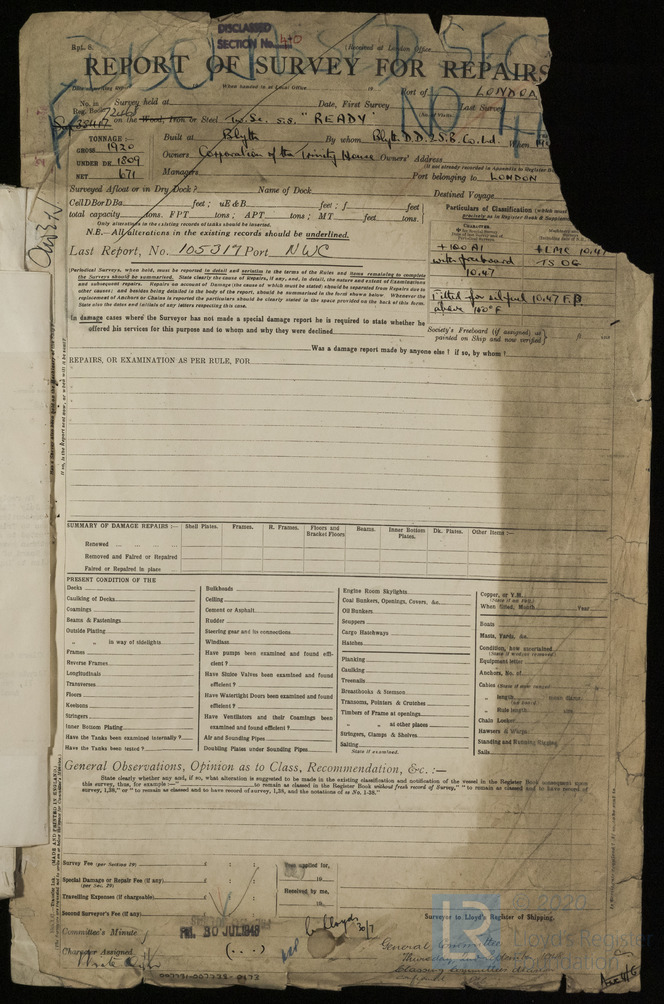 DISCLASSED
SECTION No. 40
Rpt. 8.
(Received at London Office
REPORT OF SURVEY FOR REPAIRS
When handed in at Local Office
Port of LONDON
No. in Reg. Book
Survey held at
Date, First Survey
Last Survey
on the Wood, Iron or Steel Tw. Sc. S.S. "READY"
TONNAGE:—
GROSS 1920
UNDER DK. 1809
NET 671
Built at Blyth
By whom Blyth D.D. & S.B. Co. Ld.
When
Owners Corporation of the Trinity House
Owners' Address
(If not already recorded in Appendix to Register Book
Managers
Port belonging to LONDON
Surveyed Afloat or in Dry Dock?
Name of Dock
Destined Voyage
Cell D Bor D Ba feet; uE&B feet; f feet;
total capacity tons. FPT tons; APT tons; MT feet tons.
Only alterations in the existing records of tanks should be inserted.
N.B.—All alterations in the existing records should be underlined.
Last Report, No. 105317 Port NWC
Particulars of Classification (which must
precisely as in Register Book & Supplement
+100 A1
with freeboard
10.47
+LMC 10.47
TS OG
Fitted for oil fuel 10.47 F.P.
above 150°F
(Periodical Surveys, when held, must be reported in detail and seriatim in the terms of the Rules and items remaining to complete
the Surveys should be summarised. State clearly the cause of Repairs, if any, and, in detail, the nature and extent of Examinations
and subsequent repairs. Repairs on account of Damage (the cause of which must be stated) should be separated from Repairs due to
other causes; and besides being detailed in the body of the report, should be summarised in the form shown below. Whenever the
replacement of Anchors or Chains is reported the particulars should be clearly stated in the space provided on the back of this form.
State also the dates and initials of any letters respecting this case.
In damage cases where the Surveyor has not made a special damage report he is required to state whether he
offered his services for this purpose and to whom and why they were declined
Society's Freeboard (if assigned) as
painted on Ship and now verified
Was a damage report made by anyone else? if so, by whom?
REPAIRS, OR EXAMINATION AS PER RULE, FOR
SUMMARY OF DAMAGE REPAIRS:—
Shell Plates. Frames. R. Frames. Floors and Bracket Floors Beams. Inner Bottom Plates. Dk. Plates. Other Items:—
Renewed
Removed and Faired or Repaired
Faired or Repaired in place
PRESENT CONDITION OF THE
Decks
Caulking of Decks
Coamings
Beams & Fastenings
Outside Plating
" " in way of sidelights
Frames
Reverse Frames
Longitudinals
Transverses
Floors
Keelsons
Stringers
Inner Bottom Plating
Have the Tanks been examined internally?
Have the Tanks been tested?
Bulkheads
Ceiling
Cement or Asphalt
Rudder
Steering gear and its connections
Windlass
Have pumps been examined and found efficient?
Have Sluice Valves been examined and found efficient?
Have Watertight Doors been examined and found efficient?
Have Ventilators and their Coamings been examined and found efficient?
Air and Sounding Pipes
Doubling Plates under Sounding Pipes
Engine Room Skylights
Coal Bunkers, Openings, Covers, &c.
Oil Bunkers
Scuppers
Cargo Hatchways
Hatches
Planking
Caulking
Treenails
Breasthooks & Stemson
Transoms, Pointers & Crutches
Timbers of Frame at openings
" " at other places
Stringers, Clamps & Shelves
Salting
State if examined.
Copper, or Y.M.
When fitted, Month Year
Boats
Masts, Yards, &c.
Condition, how ascertained
Equipment letter
Anchors, No. of
Cables
" length
" Rule length
Chain Locker
Hawsers & Warps
Standing and Running Rigging
Sails
General Observations, Opinion as to Class, Recommendation, &c.:—
State clearly whether any, and if so, what alteration is suggested to be made in the existing classification and notification of the vessel in the Register Book consequent upon
this survey, thus, for example:—" to remain as classed in the Register Book without fresh record of Survey," "to remain as classed and to have record of
survey, 1,38," or "to remain as classed and to have record of survey, 1,38, and the notations of ss No. 1-38."
Survey Fee (per Section 29) £ : :
Special Damage or Repair Fee (if any) £ : :
(per Sec. 29)
Travelling Expenses (if chargeable) £ : :
Second Surveyor's Fee (if any)
Fees applied for,
19
Received by me,
19
Surveyor to Lloyd's Register of Shipping.
Committee's Minute
FRI. 30 JUL 1948
30/7
Character Assigned
(...)
General Committee
© 2020
Lloyd's Register
Foundation
(MADE AND PRINTED IN ENGLAND.)